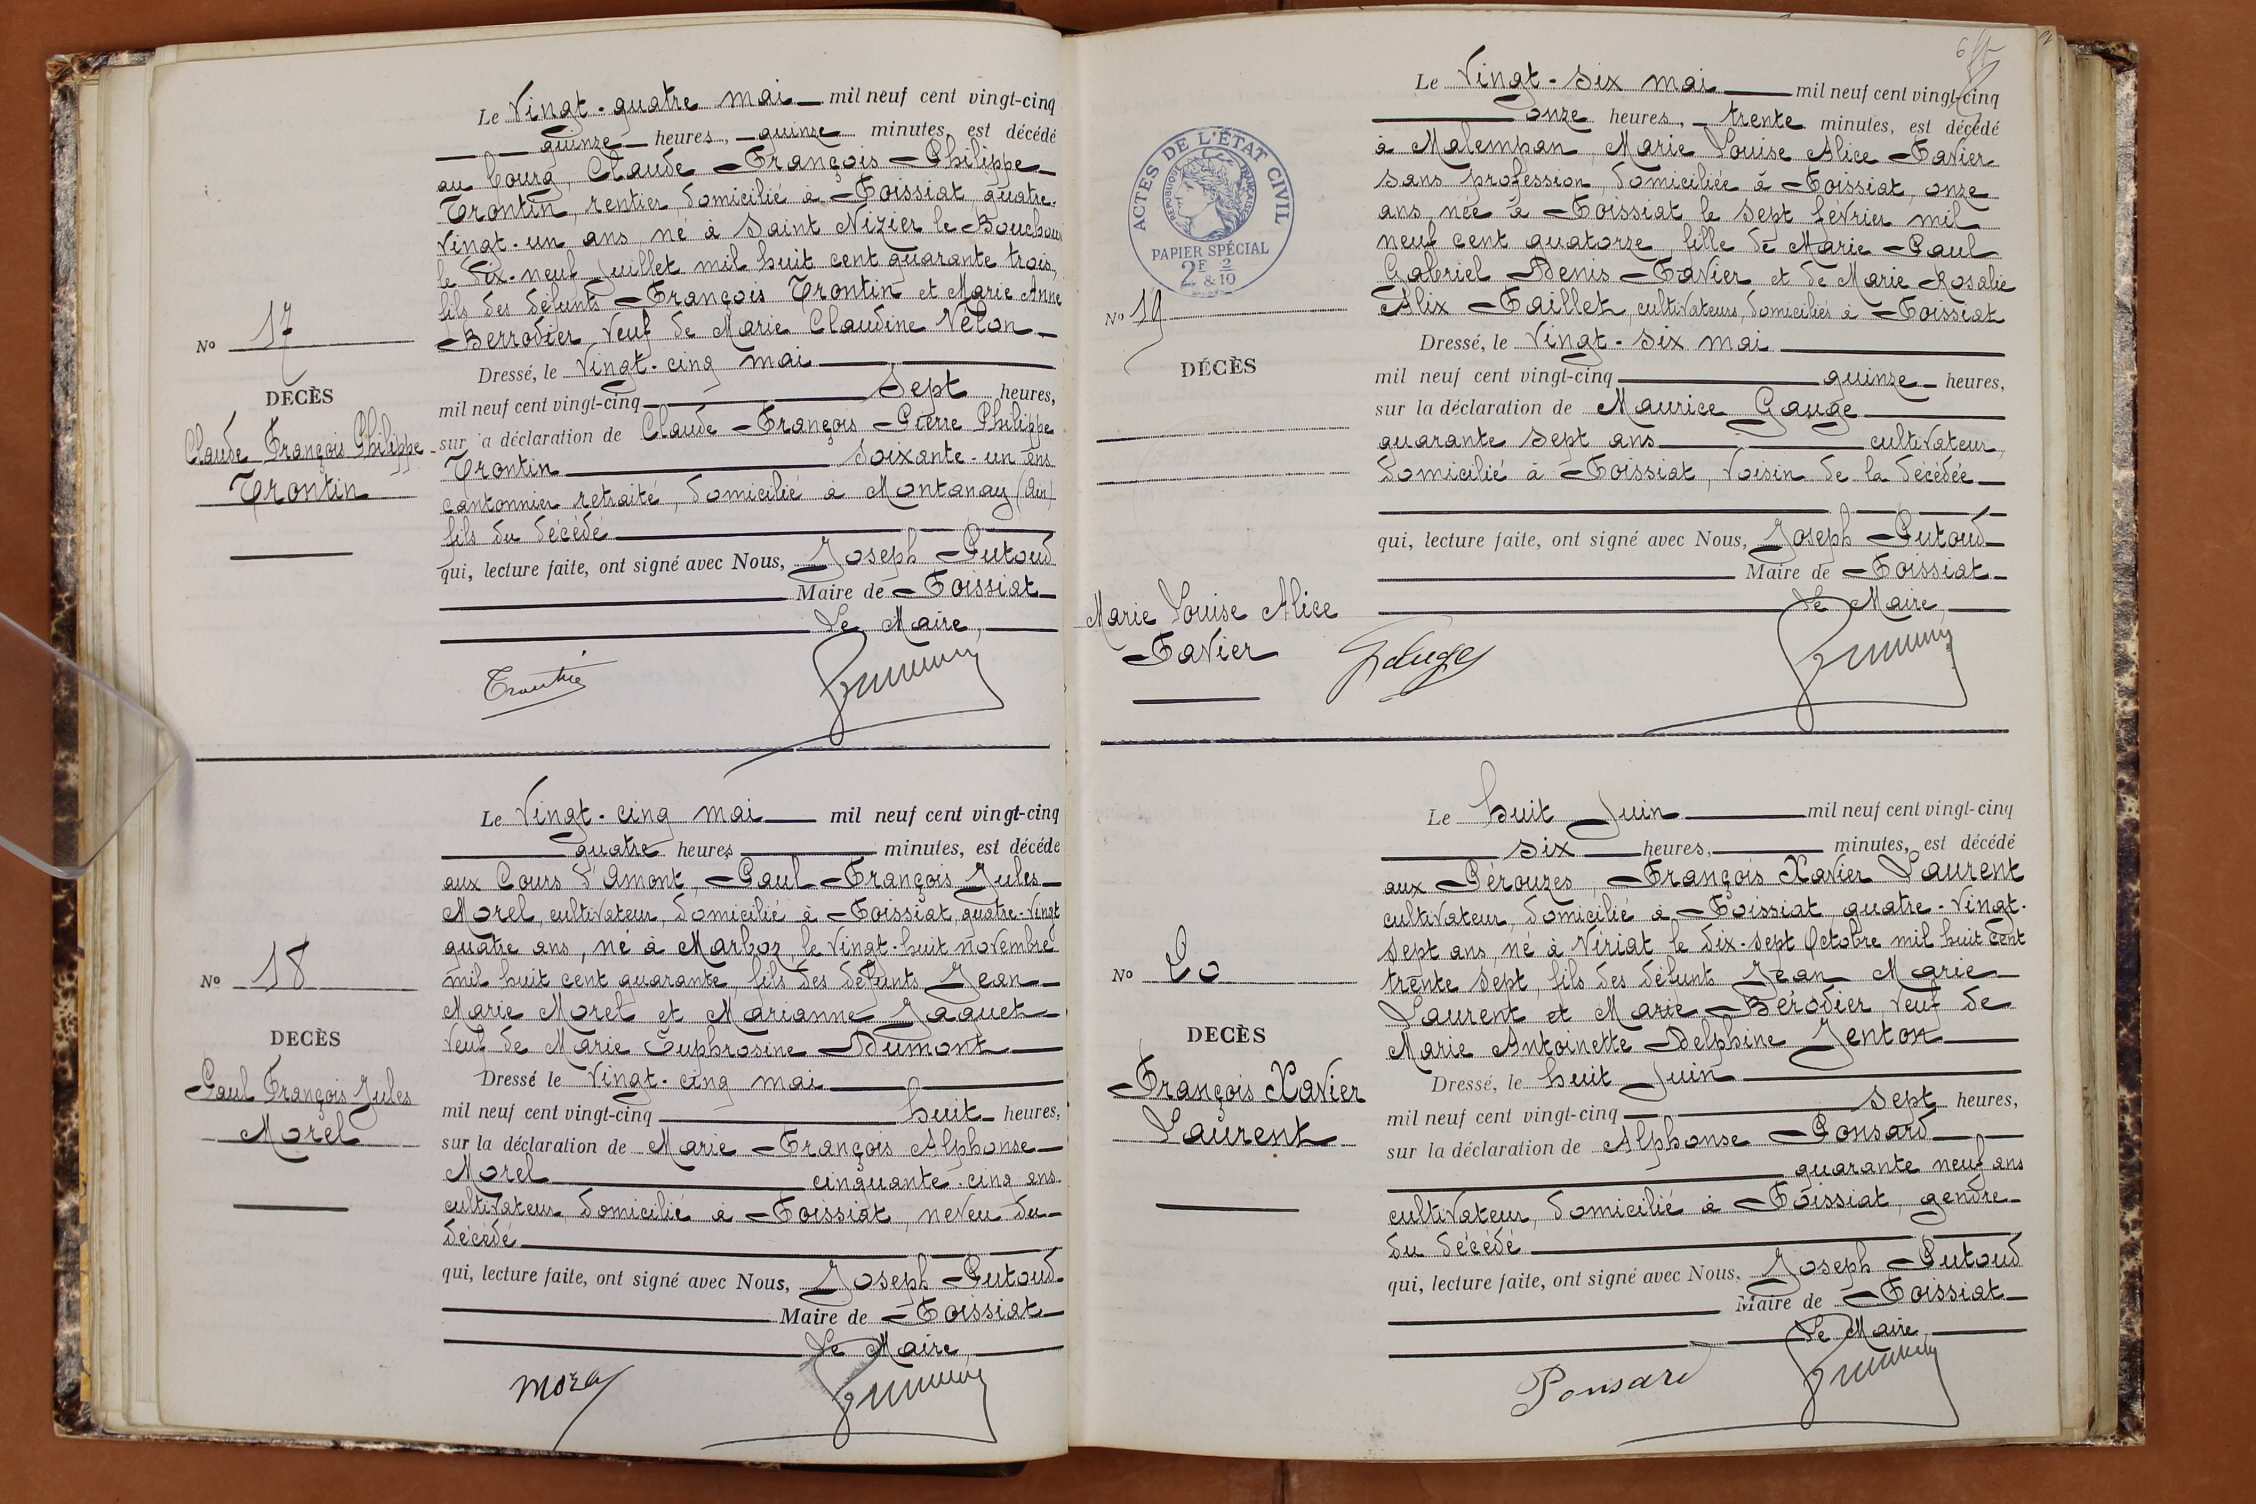 Le Vingt-quatre mai mil neuf cent vingt-cinq
quinze heures, quinze minutes, est décédé
au bourg, Claude François Philippe
Trontin, rentier domicilié à Foissiat, quatre-
vingt-un ans, né à Saint Nizier le Bouchoux
le dix-neuf juillet mil huit cent quarante trois,
fils des défunts François Trontin et Marie Anne
Berrodier, veuf de Marie Claudine Velon
No 17
DECÈS
Claude François Philippe
Trontin
Dressé, le vingt-cinq mai
mil neuf cent vingt-cinq sept heures,
sur la déclaration de Claude François Pierre Philippe
Trontin soixante-un ans
cantonnier retraité, domicilié à Montanay (Ain)
fils du décédé
qui, lecture faite, ont signé avec Nous, Joseph Putoud
Maire de Foissiat
Le Maire,
Le Vingt-cinq mai mil neuf cent vingt-cinq
quatre heures minutes, est décédé
aux Cours d'Amont, Paul François Jules
Morel, cultivateur, domicilié à Foissiat, quatre-vingt
quatre ans, né à Marboz, le vingt-huit novembre
mil huit cent quarante, fils des défunts Jean
Marie Morel et Marianne Jaquet
veuf de Marie Euphrosine Dumont
No 18
DECÈS
Paul François Jules
Morel
Dressé le vingt-cinq mai
mil neuf cent vingt-cinq huit heures,
sur la déclaration de Marie François Alphonse
Morel cinquante-cinq ans
cultivateur, domicilié à Foissiat, neveu du
décédé
qui, lecture faite, ont signé avec Nous, Joseph Putoud
Maire de Foissiat
Le Maire,
Morel
ACTES DE L'ÉTAT CIVIL
RÉPUBLIQUE FRANÇAISE
PAPIER SPÉCIAL
2F & 2/10
Le Vingt-six mai mil neuf cent vingt-cinq
onze heures, trente minutes, est décédé
à Malempan, Marie Louise Alice Favier
sans profession, domiciliée à Foissiat, onze
ans, née à Foissiat le sept février mil
neuf cent quatorze, fille de Marie Paul
Gabriel Denis Favier et de Marie Rosalie
Alix Faillet, cultivateurs, domiciliés à Foissiat
No 19
DÉCÈS
Marie Louise Alice
Favier
Dressé, le vingt-six mai
mil neuf cent vingt-cinq quinze heures,
sur la déclaration de Maurice Gauge
quarante sept ans cultivateur,
domicilié à Foissiat, voisin de la décédée
qui, lecture faite, ont signé avec Nous, Joseph Putoud
Maire de Foissiat
Le Maire,
Gauge
Le huit Juin mil neuf cent vingt-cinq
six heures, minutes, est décédé
aux Pérouzes, François Xavier Laurent
cultivateur, domicilié à Foissiat, quatre-vingt-
sept ans, né à Viriat le dix-sept Octobre mil huit cent
trente sept, fils des défunts Jean Marie
Laurent et Marie Bérodier, veuf de
Marie Antoinette Delphine Jenton
No 20
DECÈS
François Xavier
Laurent
Dressé, le huit Juin
mil neuf cent vingt-cinq sept heures,
sur la déclaration de Alphonse Ponsard
quarante neuf ans
cultivateur, domicilié à Foissiat, gendre
du décédé
qui, lecture faite, ont signé avec Nous, Joseph Putoud
Maire de Foissiat
Le Maire
Ponsard